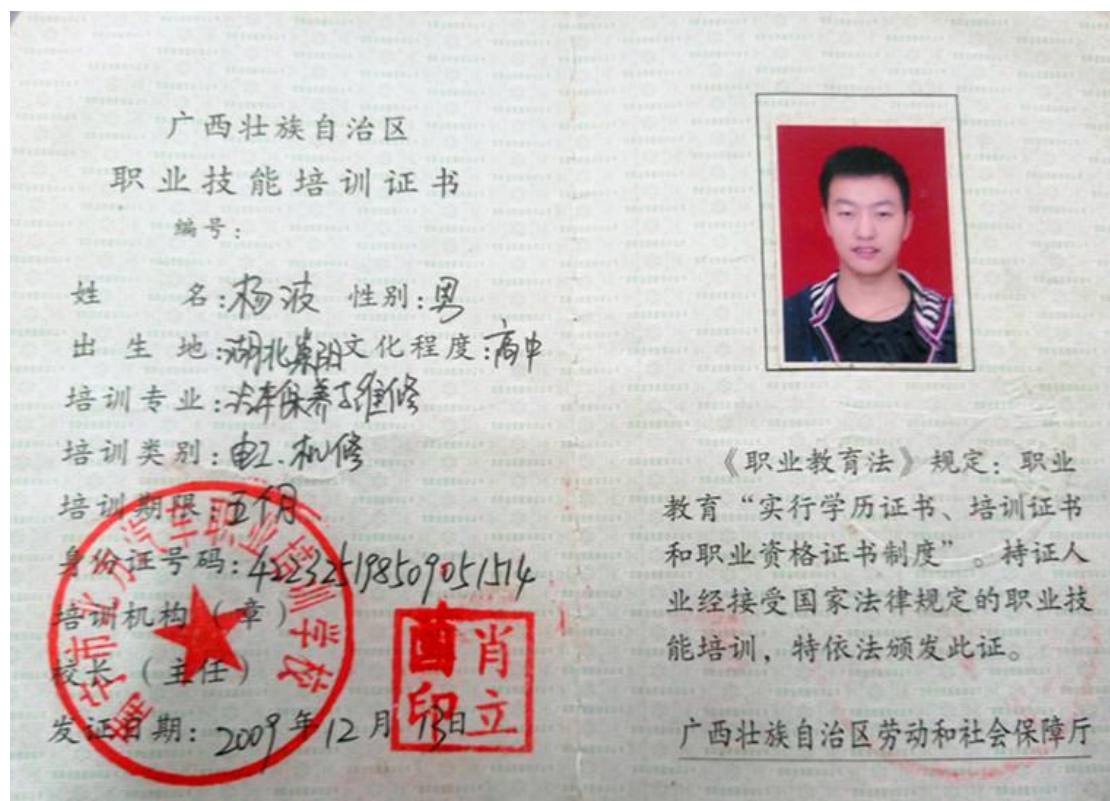 广西壮族自治区
职业技能培训证书
编号:
姓 名:杨波 性别:男
出 生 地:湖北 文化程度:高中
培训专业:汽车保养与维修
培训类别:电工.机修
培训期限:五个月
身份证号码:422325198509051514
培训机构(章)
校长(主任)
发证日期:2009年12月13日
南宁市北方汽车职业培训学校
肖立
印
《职业教育法》规定:职业
教育“实行学历证书、培训证书
和职业资格证书制度”。持证人
业经接受国家法律规定的职业技
能培训,特依法颁发此证。
广西壮族自治区劳动和社会保障厅